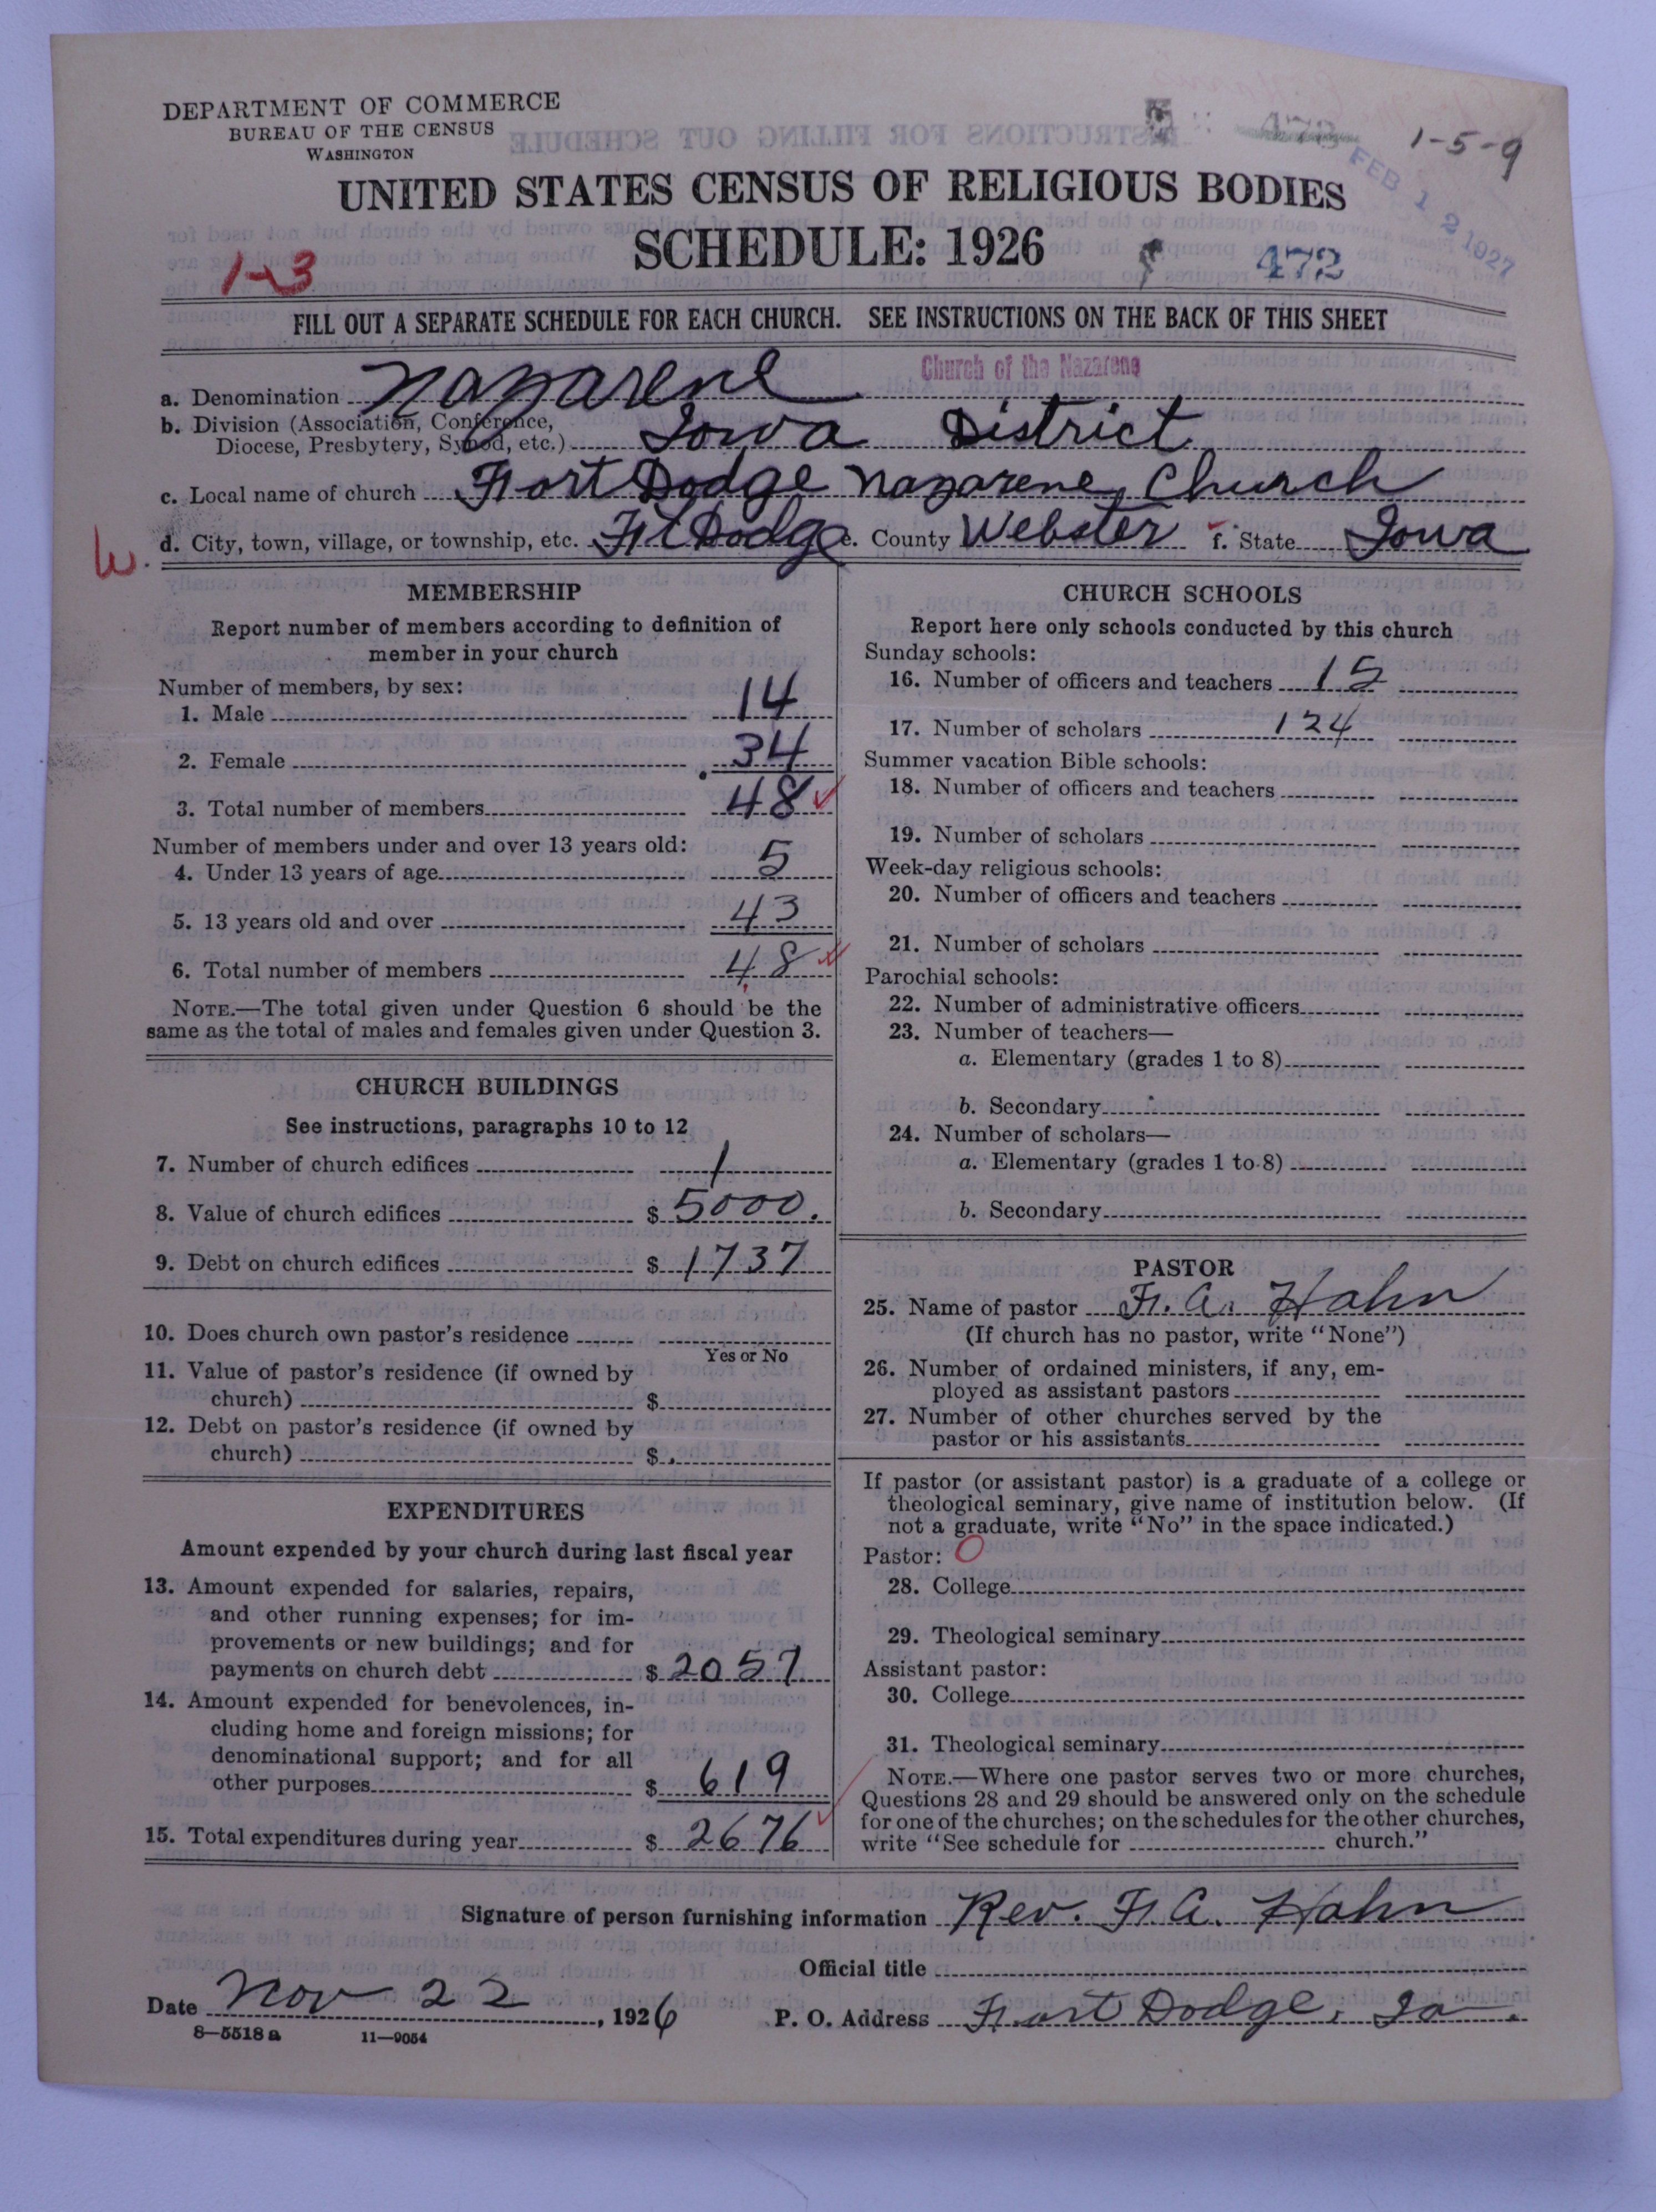 DEPARTMENT OF COMMERCE
BUREAU OF THE CENSUS
WASHINGTON
473
1-5-9
FEB 12 1927
UNITED STATES CENSUS OF RELIGIOUS BODIES
SCHEDULE: 1926
1-3
472
FILL OUT A SEPARATE SCHEDULE FOR EACH CHURCH. SEE INSTRUCTIONS ON THE BACK OF THIS SHEET
a. Denomination Nazarene Church of the Nazarene
b. Division (Association, Conference,
Diocese, Presbytery, Synod, etc.) Iowa District
c. Local name of church Fort Dodge Nazarene Church
W.
d. City, town, village, or township, etc. Ft Dodge e. County Webster f. State Iowa
MEMBERSHIP
Report number of members according to definition of
member in your church
Number of members, by sex:
1. Male 14
2. Female 34
3. Total number of members 48
Number of members under and over 13 years old:
4. Under 13 years of age 5
5. 13 years old and over 43
6. Total number of members 48
NOTE.—The total given under Question 6 should be the
same as the total of males and females given under Question 3.
CHURCH BUILDINGS
See instructions, paragraphs 10 to 12
7. Number of church edifices 1
8. Value of church edifices $ 5000.
9. Debt on church edifices $ 1737
10. Does church own pastor's residence
Yes or No
11. Value of pastor's residence (if owned by
church) $
12. Debt on pastor's residence (if owned by
church) $
EXPENDITURES
Amount expended by your church during last fiscal year
13. Amount expended for salaries, repairs,
and other running expenses; for im-
provements or new buildings; and for
payments on church debt $ 2057
14. Amount expended for benevolences, in-
cluding home and foreign missions; for
denominational support; and for all
other purposes $ 619
15. Total expenditures during year $ 2676
CHURCH SCHOOLS
Report here only schools conducted by this church
Sunday schools:
16. Number of officers and teachers 15
17. Number of scholars 124
Summer vacation Bible schools:
18. Number of officers and teachers
19. Number of scholars
Week-day religious schools:
20. Number of officers and teachers
21. Number of scholars
Parochial schools:
22. Number of administrative officers
23. Number of teachers—
a. Elementary (grades 1 to 8)
b. Secondary
24. Number of scholars—
a. Elementary (grades 1 to 8)
b. Secondary
PASTOR
25. Name of pastor F. A. Hahn
(If church has no pastor, write "None")
26. Number of ordained ministers, if any, em-
ployed as assistant pastors
27. Number of other churches served by the
pastor or his assistants
If pastor (or assistant pastor) is a graduate of a college or
theological seminary, give name of institution below. (If
not a graduate, write "No" in the space indicated.)
Pastor: O
28. College
29. Theological seminary
Assistant pastor:
30. College
31. Theological seminary
NOTE.—Where one pastor serves two or more churches,
Questions 28 and 29 should be answered only on the schedule
for one of the churches; on the schedules for the other churches,
write "See schedule for church."
Signature of person furnishing information Rev. F. A. Hahn
Official title
Date Nov 22, 1926 P. O. Address Fort Dodge, Ia.
8—5518 a 11—9054